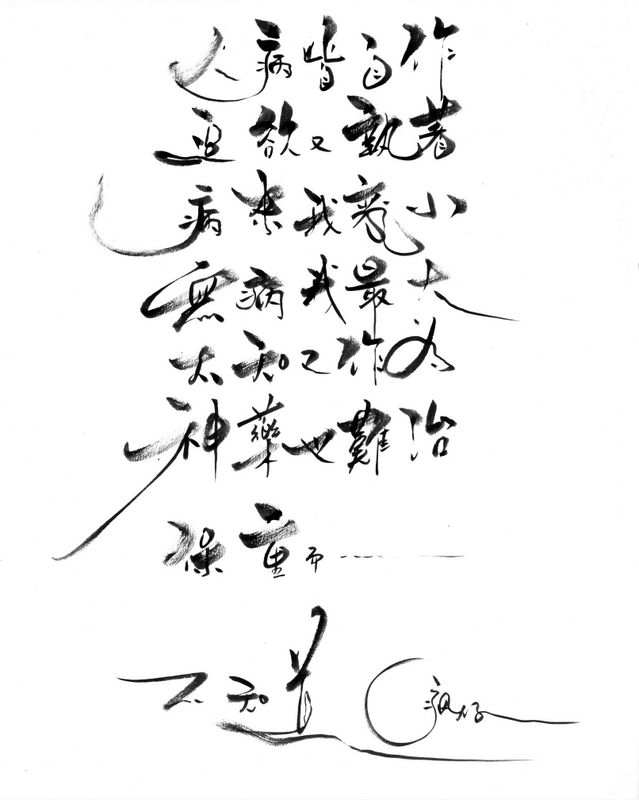 人病皆自作
迫欲又執著
病來我龍小
無病我最大
太知己作為
神藥也難治
保重而
不知道